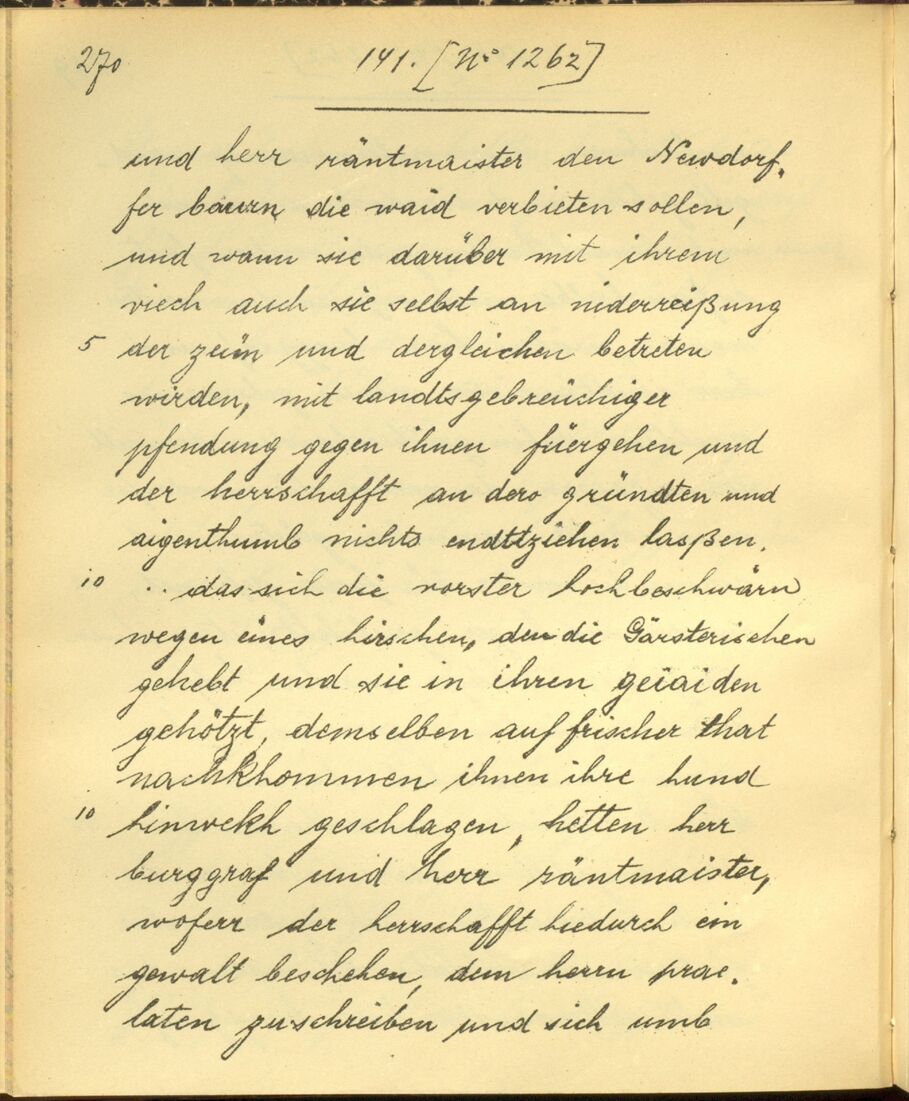 270
141. [No 1262]
und herr räntmaister den Newdorf.
fer baurn die waid verbieten sollen,
und wann sie darüber mit ihrem
viech auch sie selbst an niderreißung
5 der zeün und dergleichen betreten
wirden, mit landtsgebreüchiger
pfendung gegen ihnen füergehen und
der herrschafft an dero gründten und
aigenthumb nichts endttziehen laßen.
10 .. das sich die vorster hochbeschwärn
wegen eines hirschen, den die Gärsterischen
gehebt und sie in ihren geiaiden
gehötzt, demselben auf frischer that
nachkhommen ihnen ihre hund
10 hinwekh geschlagen, hetten herr
burggraf und herr räntmaister,
woferr der herrschafft hiedurch ein
gewalt beschehen, dem herrn prae.
laten zuschreiben und sich umb